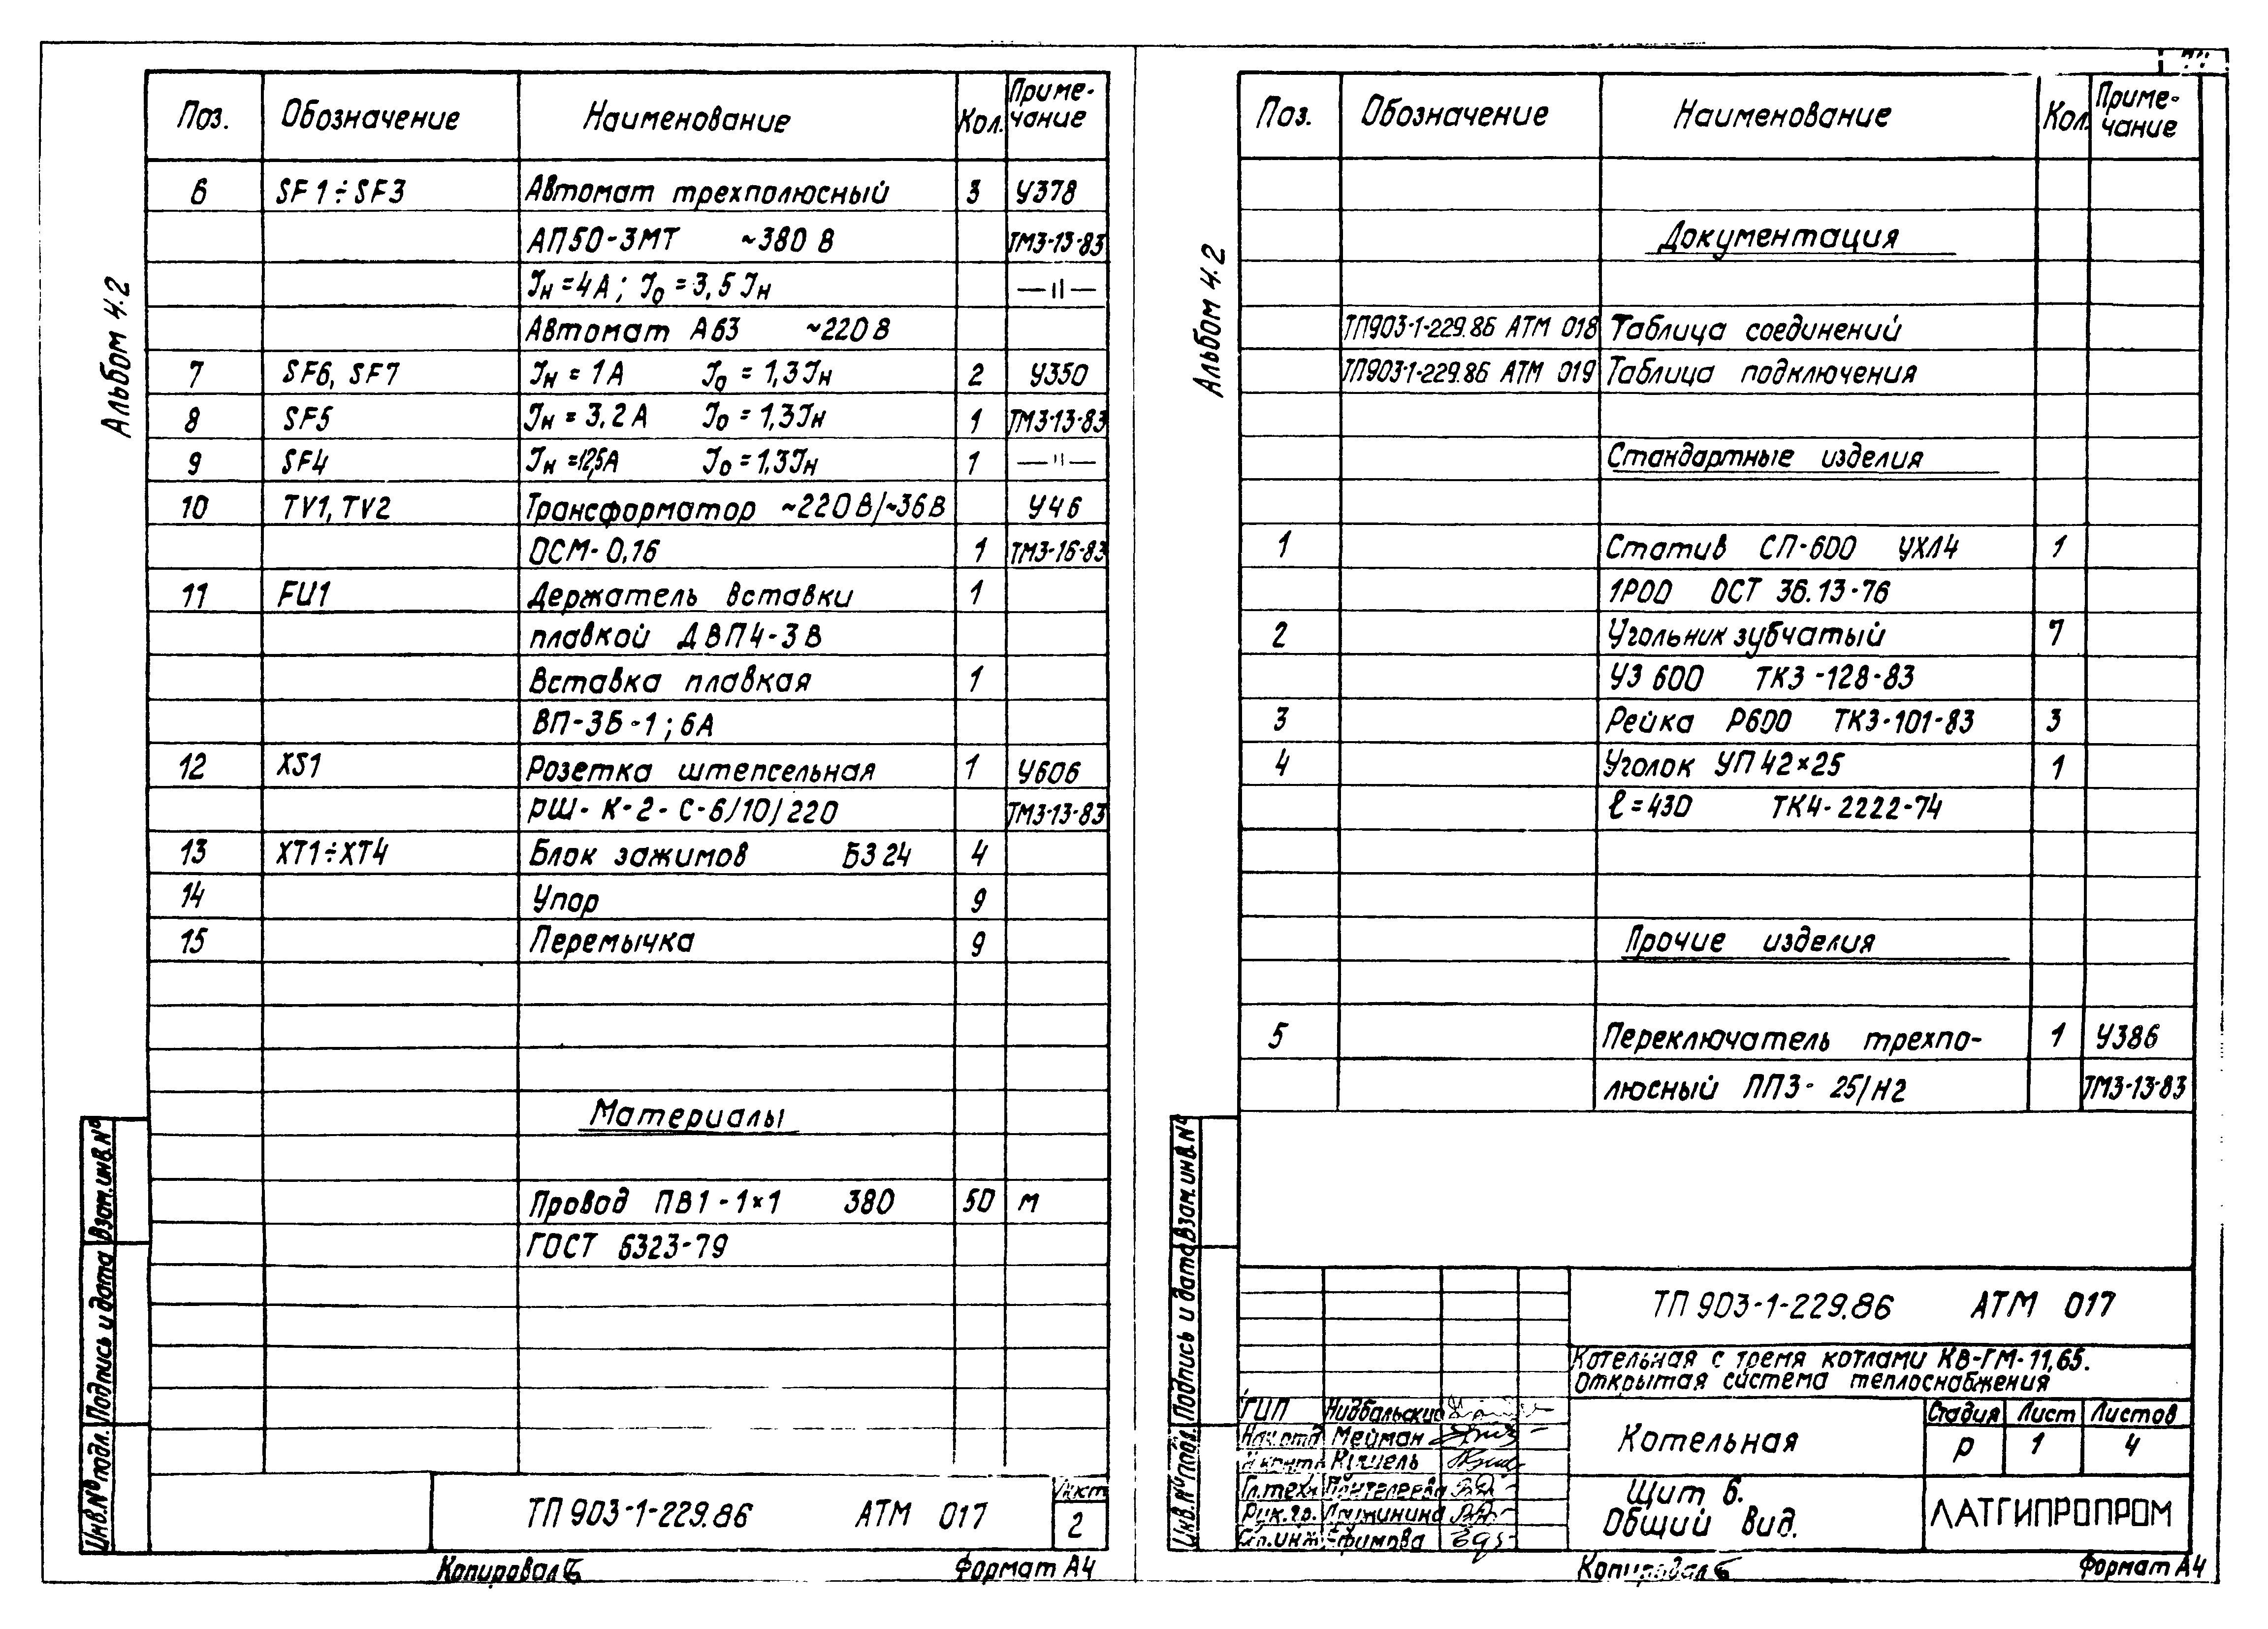 Альбом 4.2
Поз. Обозначение Наименование Кол. Приме-
чание
6 SF1÷SF3 Автомат трехполюсный 3 У378
АП50-3МТ ~380 В ТМ3-13-83
Iн =4А; Iо =3,5 Iн —"—
Автомат А63 ~220В
7 SF6, SF7 Iн = 1А Iо = 1,3Iн 2 У350
8 SF5 Iн = 3,2А Iо = 1,3Iн 1 ТМ3-13-83
9 SF4 Iн =12,5А Iо =1,3Iн 1 —"—
10 TV1, TV2 Трансформатор ~220В/~36В У46
ОСМ-0,16 1 ТМ3-16-83
11 FU1 Держатель вставки 1
плавкой ДВП4-3В
Вставка плавкая 1
ВП-3Б-1; 6А
12 XS1 Розетка штепсельная 1 У606
РШ-К-2-С-6/10/220 ТМ3-13-83
13 XT1÷XT4 Блок зажимов БЗ24 4
14 Упор 9
15 Перемычка 9
Материалы
Провод ПВ1-1×1 380 50 м
ГОСТ 6323-79
Инв.№ подл. Подпись и дата Взам.инв.№
ТП 903-1-229.86 АТМ 017
2
Копировал
Формат А4
Альбом 4.2
Поз. Обозначение Наименование Кол. Приме-
чание
Документация
ТП903-1-229.86 АТМ 018 Таблица соединений
ТП903-1-229.86 АТМ 019 Таблица подключения
Стандартные изделия
1 Статив СП-600 УХЛ4 1
1Р00 ОСТ 36.13-76
2 Угольник зубчатый 7
УЗ 600 ТК3-128-83
3 Рейка Р600 ТК3-101-83 3
4 Уголок УП 42×25 1
ℓ=430 ТК4-2222-74
Прочие изделия
5 Переключатель трехпо- 1 У386
люсный ПП3-25/Н2 ТМ3-13-83
Инв.№ подл. Подпись и дата Взам.инв.№
ТП 903-1-229.86 АТМ 017
Котельная с тремя котлами КВ-ГМ-11,65.
Открытая система теплоснабжения
ГИП Нидбальский
Нач.отд Мейман
Гл.техн Пантелеева
Рук.гр. Лужинина
Ст.инж Ефимова
Котельная
Стадия Лист Листов
Р 1 4
Щит 6.
Общий вид.
ЛАТГИПРОПРОМ
Копировал
Формат А4